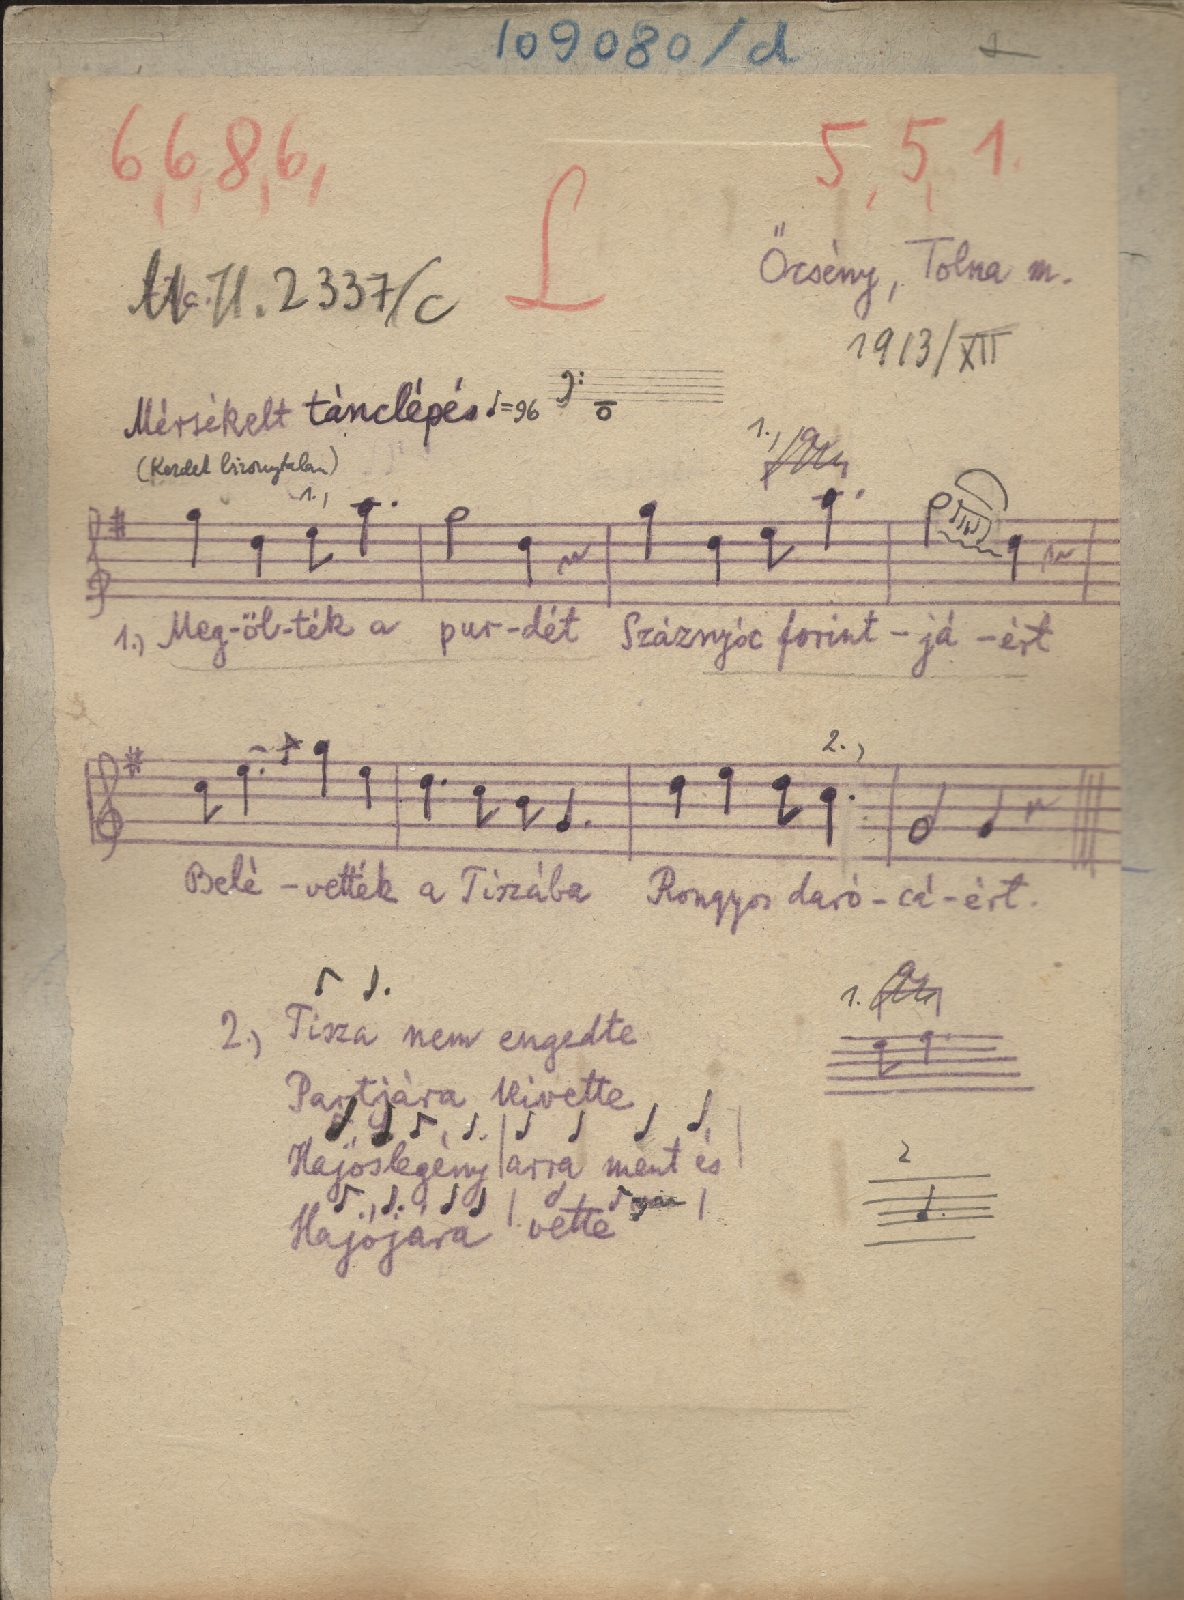 109080/d
6, 6, 8, 6,
5, 5, 1.
L
M.H. 2337/c
Őcsény, Tolna m.
1913/XII
Mérsékelt tánclépés ♩=96
(Kezdet bizonytalan)
1.,
1.,
1.) Meg-öl-ték a pur-dét Száznyóc forint-já-ért
2.,
Belé-vették a Tiszába Rongyos daró-cá-ért.
2.) Tisza nem engedte
Partjára kivette
Hajóslegény arra ment és
Hajójára vette
1.
2